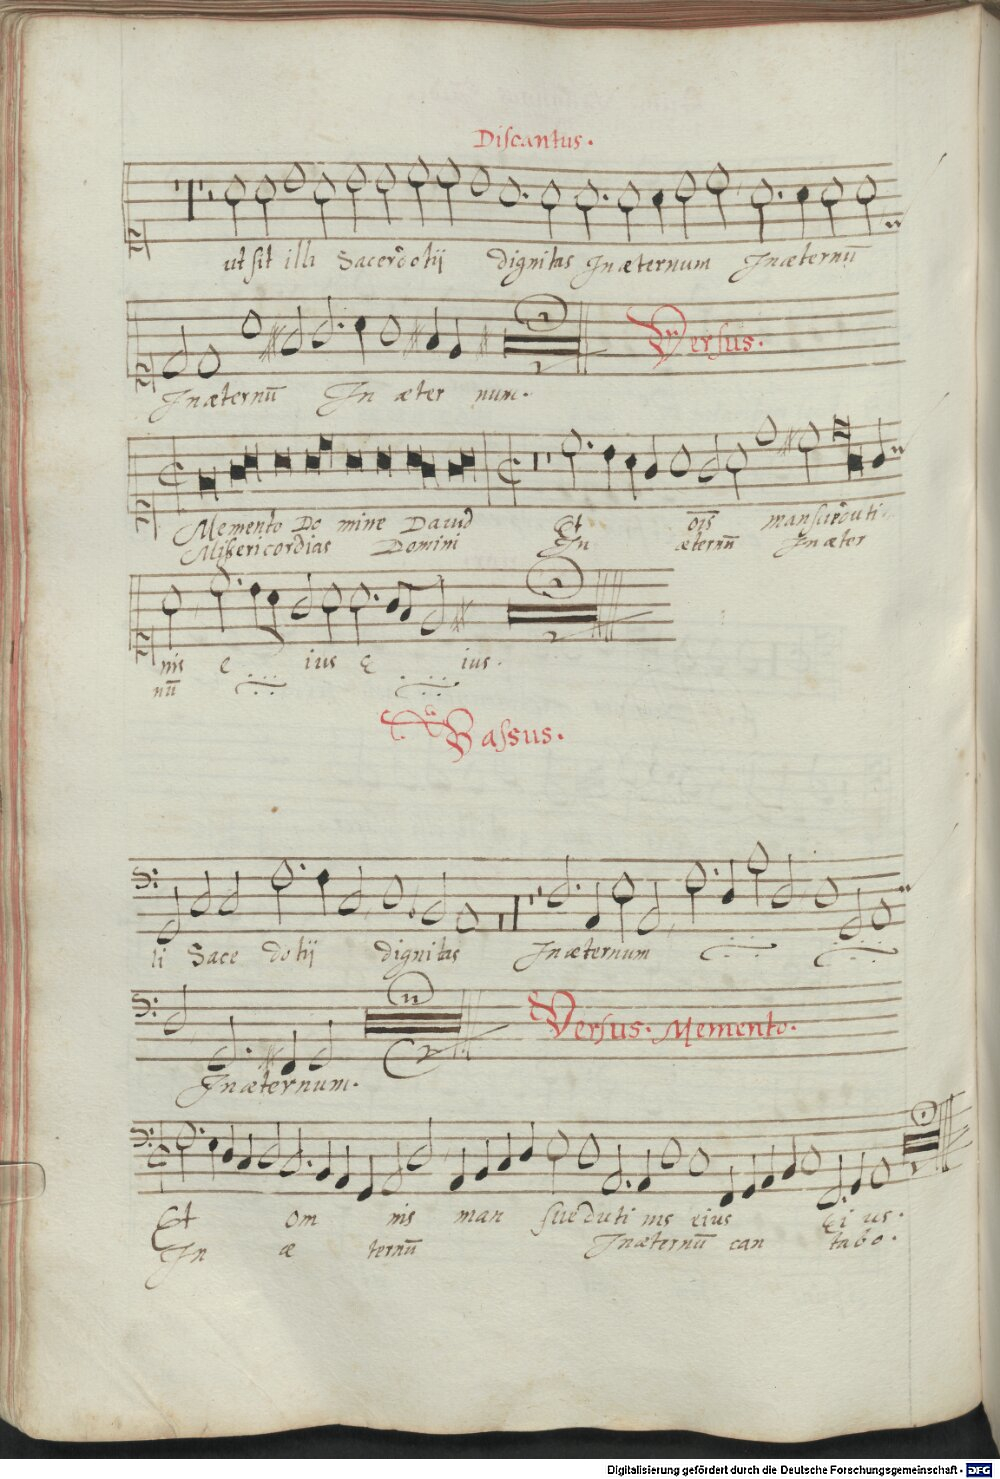 Discantus.
ut sit illi Sacerdotij dignitas Inæternum Inæternū
Inæternū In æter num.
Versus.
Memento Do mine Dauid Et oīs mansuetuti
Misericordias Domini In æternū Inæter
nis e ius e ius.
nū
Bassus.
li Sace dotij dignitas Inæternum
Inæternum.
Versus. Memento.
Et om nis man sue duti nis eius ei us.
In æ ternū Inæternū can tabo.
Digitalisierung gefördert durch die Deutsche Forschungsgemeinschaft - DFG